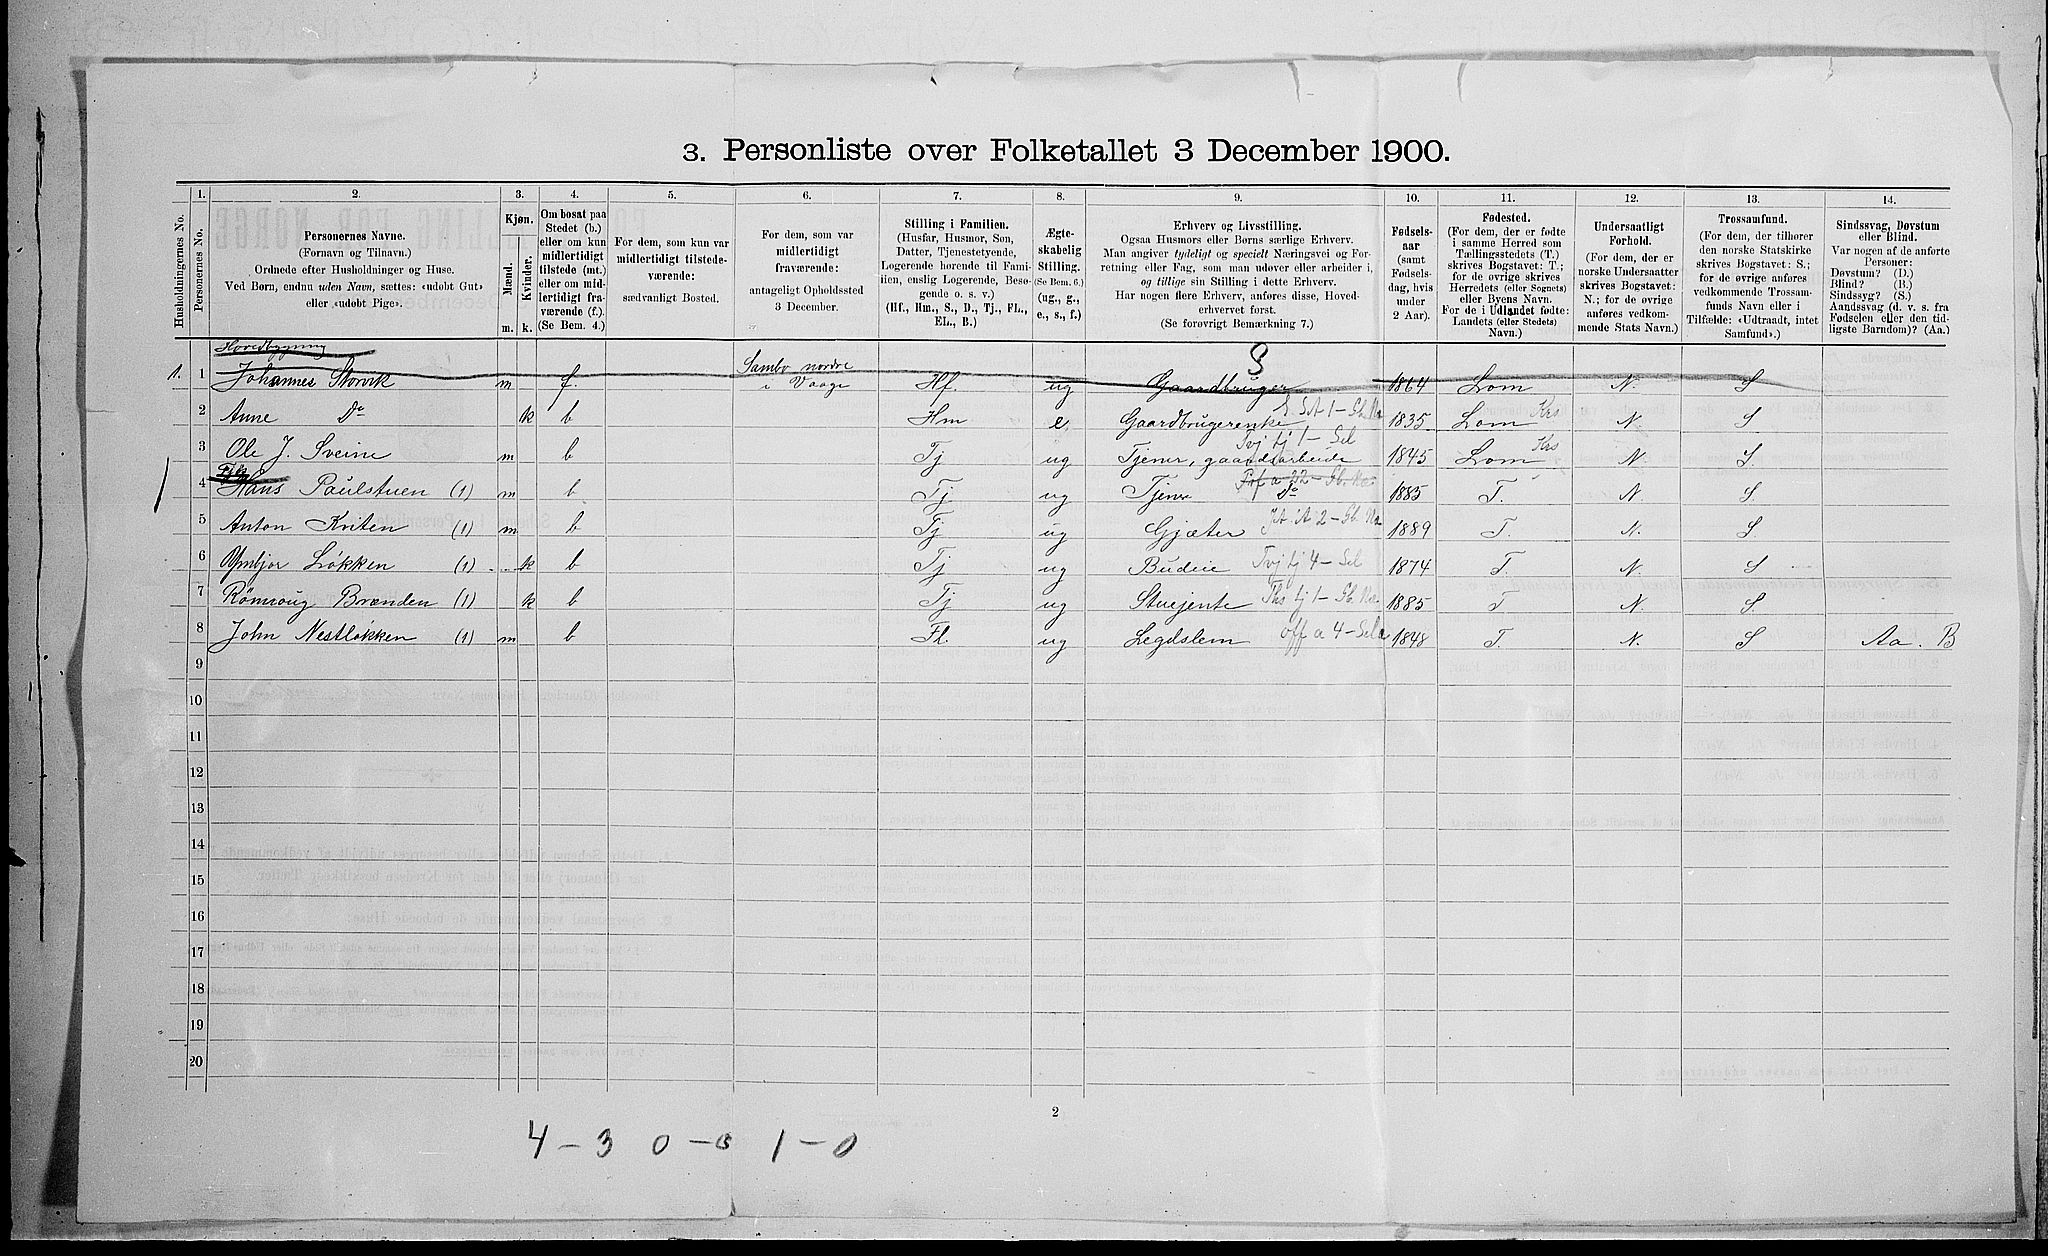 3. Personliste over Folketallet 3 December 1900.
Husholdningernes No.
1.
Personernes No.
2.
Personernes Navne.
(Fornavn og Tilnavn.)
Ordnede efter Husholdninger og Huse.
Ved Børn, endnu uden Navn, sættes: «udøbt Gut»
eller «udøbt Pige».
3.
Kjøn.
Mænd.
Kvinder.
m.
k.
4.
Om bosat paa
Stedet (b.)
eller om kun
midlertidigt
tilstede (mt.)
eller om mid-
lertidigt fra-
værende (f.).
(Se Bem. 4.)
5.
For dem, som kun var
midlertidigt tilstede-
værende:
sædvanligt Bosted.
6.
For dem, som var
midlertidigt
fraværende:
antageligt Opholdssted
3 December.
7.
Stilling i Familien.
(Husfar, Husmor, Søn,
Datter, Tjenestetyende,
Logerende hørende til Fami-
lien, enslig Logerende, Besø-
gende o. s. v.)
(Hf., Hm., S., D., Tj., FL.,
EL., B.)
8.
Ægte-
skabelig
Stilling.
(Se Bem. 6.)
(ug., g.,
e., s., f.)
9.
Erhverv og Livsstilling.
Ogsaa Husmors eller Børns særlige Erhverv.
Man angiver tydeligt og specielt Næringsvei og For-
retning eller Fag, som man udøver eller arbeider i,
og tillige sin Stilling i dette Erhverv.
Har nogen flere Erhverv, anføres disse, Hoved-
erhvervet først.
(Se forøvrigt Bemærkning 7.)
10.
Fødsels-
aar
(samt
Fødsels-
dag, hvis
under
2 Aar).
11.
Fødested.
(For dem, der er fødte
i samme Herred som
Tællingsstedets (T.)
skrives Bogstavet: T.;
for de øvrige skrives
Herredets (eller Sognets)
eller Byens Navn.
For de i Udlandet fødte:
Landets (eller Stedets)
Navn.)
12.
Undersaatligt
Forhold.
(For dem, der er
norske Undersaatter
skrives Bogstavet:
N.; for de øvrige
anføres vedkom-
mende Stats Navn.)
13.
Trossamfund.
(For dem, der tilhører
den norske Statskirke
skrives Bogstavet: S.;
for de øvrige anføres
vedkommende Trossam-
funds Navn eller i
Tilfælde: «Udtraadt, intet
Samfund».)
14.
Sindssvag, Døvstum
eller Blind.
Var nogen af de anførte
Personer:
Døvstum? (D.)
Blind? (B.)
Sindssyg? (S.)
Aandssvag (d. v. s. fra
Fødselen eller den tid-
ligste Barndom)? (Aa.)
Hovedbygning
1. 1 Johannes Storvik m f. Sambo nordre i Vaage Hf ug Gaardbruger 1864 Lom N. S
2 Anne Do k b Hm e Gaardbrugerenke 1835 Lom Krs N. S.
3 Ole J. Sveine m b Tj ug Tjener, gaardsarbeide 1845 Lom Krs N. S.
4 Hans Paulstuen (1) m b Tj ug Tjener Do 1885 T. N. S
5 Anton Kviten (1) m b Tj ug Gjæter 1889 T. N. S
6 Ombjor Løkken (1) k b Tj ug Budeie Tvj tj 4 - Sel 1874 T. N. S
7 Rømoug Brænden (1) k b Tj ug Stuejente 1885 T N. S.
8 John Nestløkken (1) m b Fl. ug Legdslem off a 4 - Sel 1848 T. N. S Aa. B
9
10
11
12
13
14
15
16
17
18
19
20
2
4 - 3 0 - 3 1 - 0